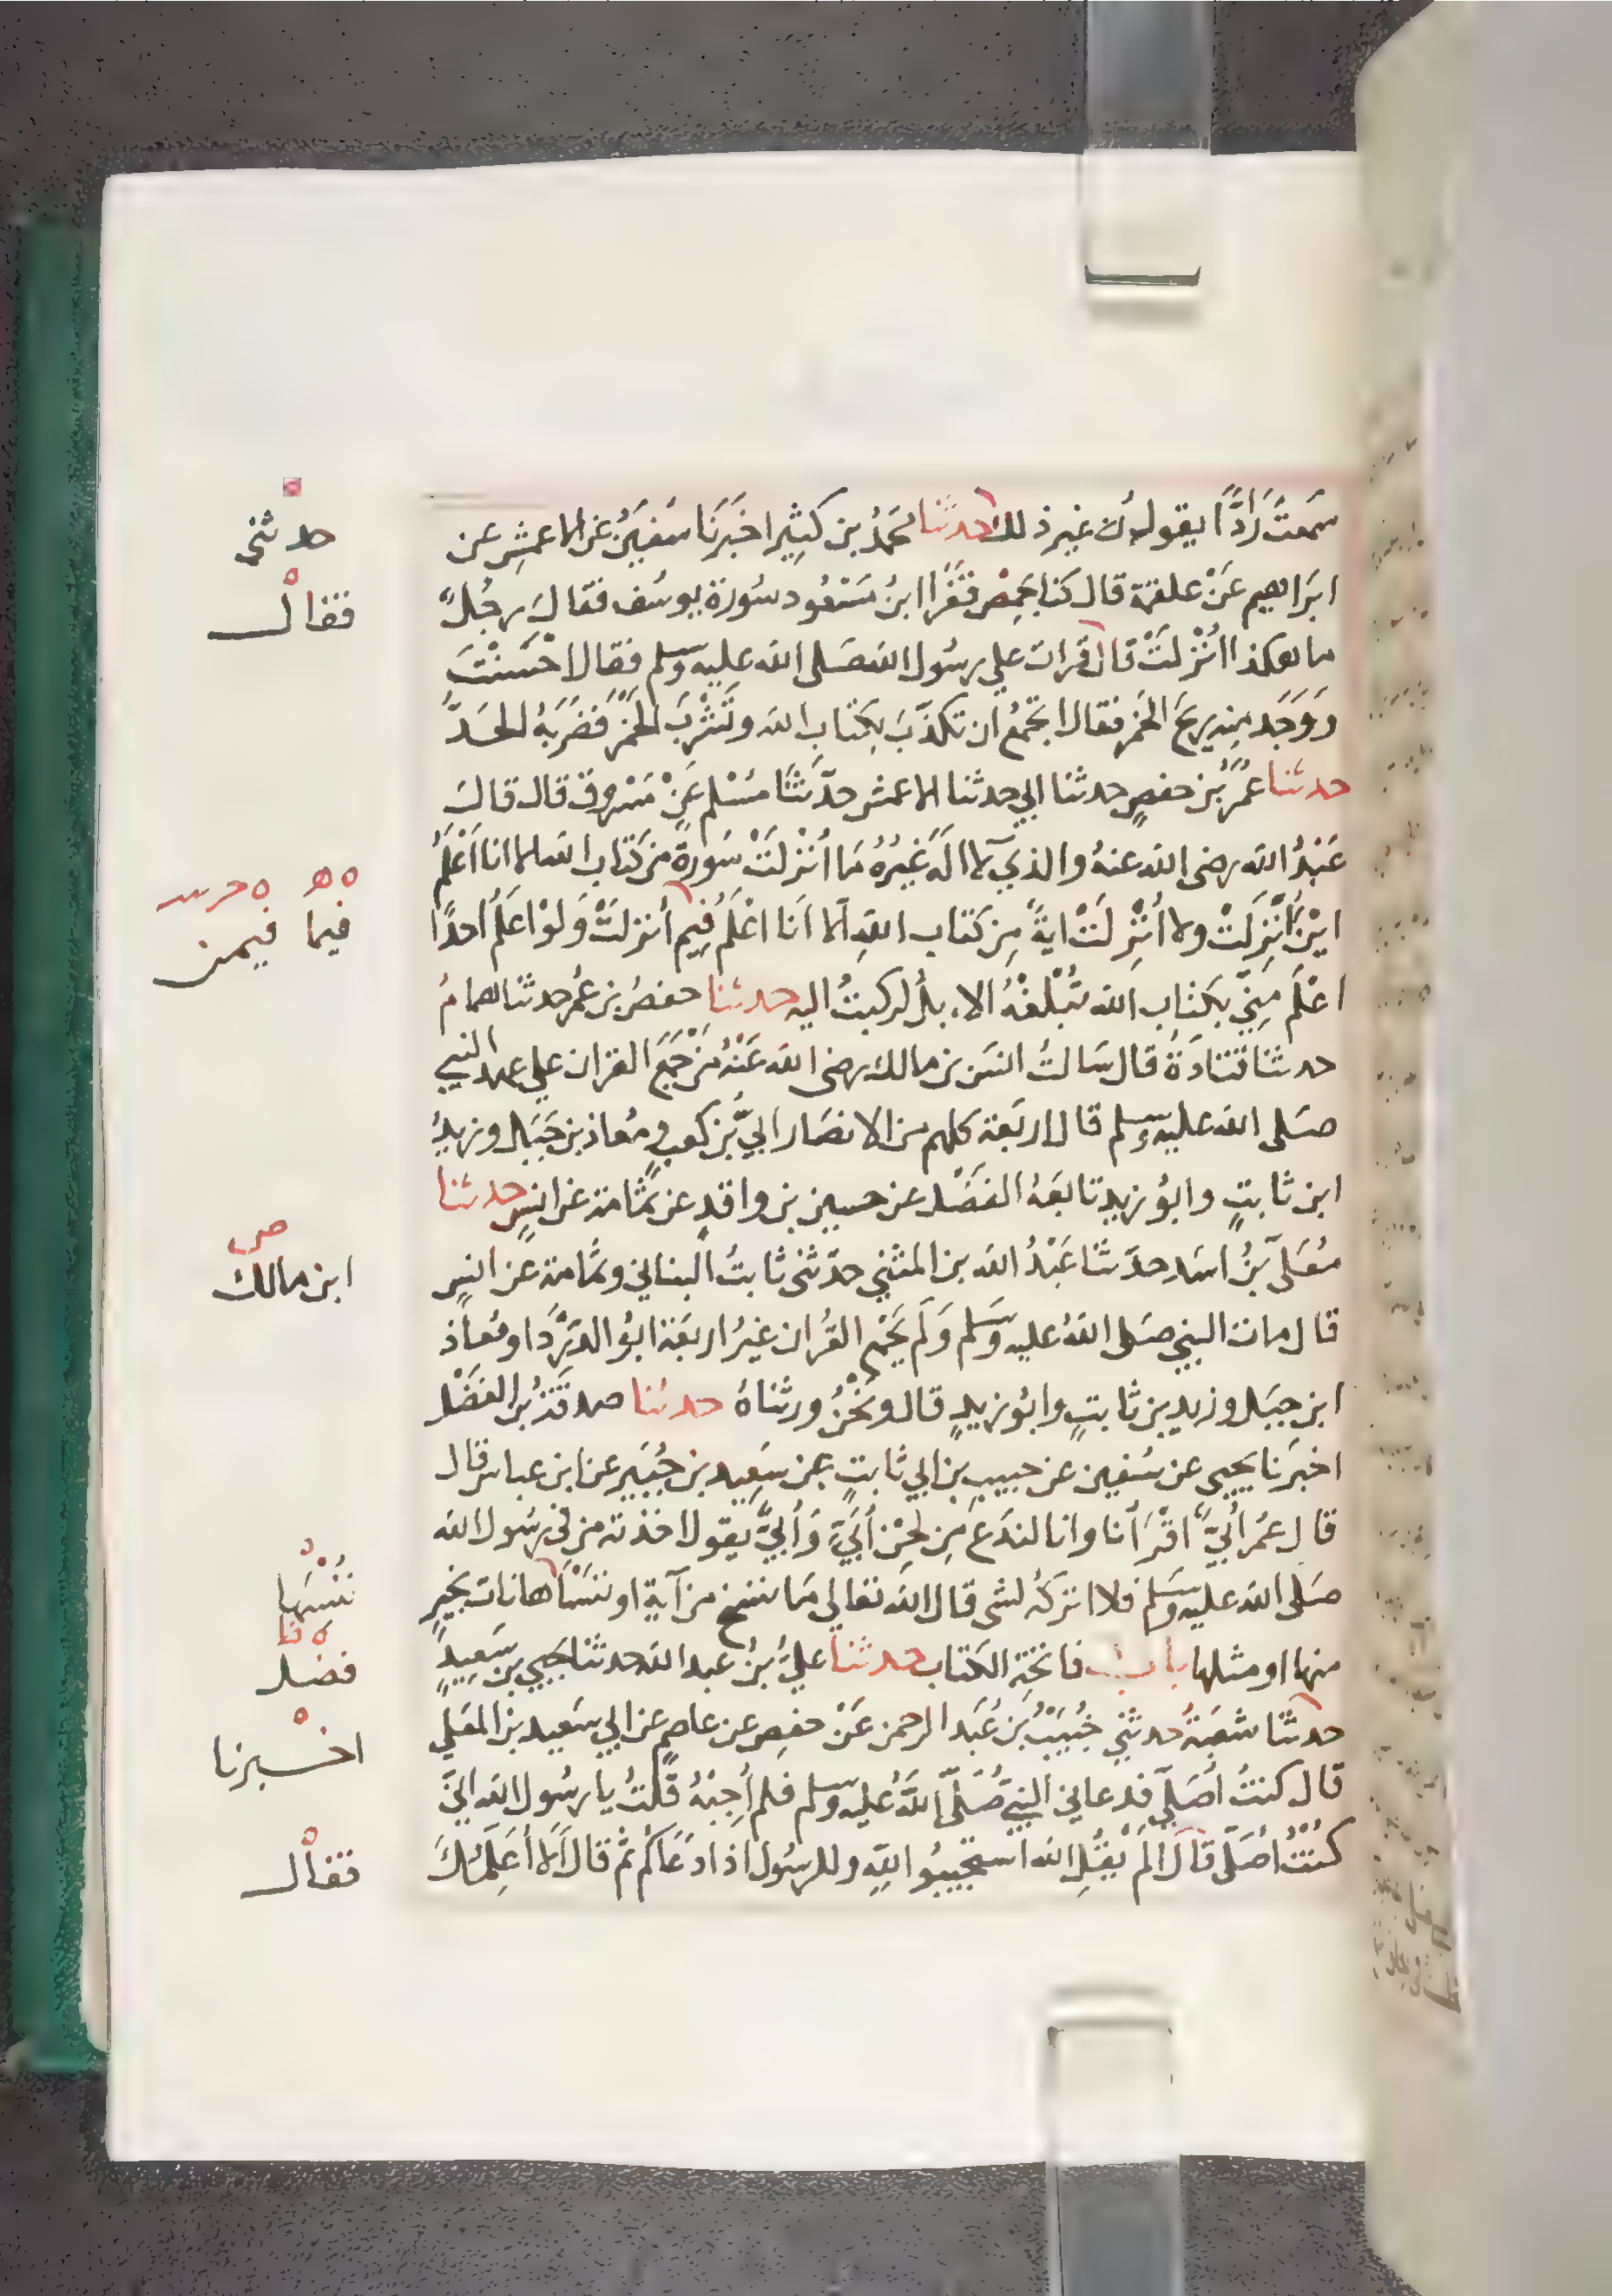 سَمعتُ رَادًّا يقول أن غير ذلك حدثنا محمدُ بن كثِيرٍ اخبَرَنَا سُفيَنُ عن الاعمشِ عن
ابرَاهيم عَنْ علقمة قال كنا بحِمْصَ فَقَرَا ابنُ مَسْعُودٍ سُورَة يوسُف فقالَ رجُلٌ
ما هكذا اُنْزلَتْ قال قرات علي رسُول الله صَلى الله عليه وسلم فقال احْسَنْتَ
وَوَجَد مِنه ريحَ الخمرِ فقال اتجْمعُ ان تكذّبَ بِكتابِ الله وتَشْرَبَ الخمْرَ فضَرَبَهُ الحَدَّ
حدثنا عُمَرُ بْنُ حفصٍ حدثنا ابي حدثنا الاعمش حدّثنَا مُسْلم عَنْ مَسْروقٍ قال قالَ
عَبْدُ الله رضى الله عنهُ والذي لآاله غَيْرُهُ مَا اُنزلَتْ سُورةٌ من كتاب الله الا انا اَعْلَمُ
ايْنَ اُنْزِلَتْ ولا اُنْزِلَتْ ايةٌ مِن كتاب اللهِ اِلّا اَنا اعْلَمُ فِيم اُنزلَتْ وَلوْ اعلَمُ احدًا
اعْلَم مِنّي بكتابِ الله تُبَلِّغُهُ الابلُ لركبتُ اليه حدثنا حفصُ بن عُمر حدثنا همامٌ
حدثنا قتادَةُ قال سَالتُ انسَ بن مالك رضى الله عَنْهُ مَنْ جَمَعَ القران علي عهد النبي
صَلى الله عليه وسلم قال اربَعة كلهم من الانصَار ابيّ بْن كعبٍ ومُعاذ بن جَبَل وزيدُ
ابن ثابتٍ وابُو زيدٍ تابعَهُ الفَضْل عن حسين بن واقدٍ عن ثُمامة عن انسٍ حدثنا
مُعَلَّى بْنُ اسَدٍ حدّثنا عَبْدُ الله بن المثني حدّثنى ثابتُ البناني وثُمامة عن انسٍ
قال مات النبي صَلى اللهُ عليه وسَلم وَلَم يجْمع القُران غيرُ اربَعة ابُو الدرْدَا ومُعاذ
ابن جبَل وزيد بن ثابتٍ وابُو زيدٍ قال ونحْنُ ورثناهُ حدثنا صدقَةُ بْن الفضْل
اخبرَنا يحيى عن سُفين عن حبيبِ بن ابي ثابتٍ عن سَعِيد بن جُبَير عن ابن عباس قال
قال عمَر اُبَيٌّ اقْرَأنا وانا لندَع مِن لحْنِ اُبَيٍّ وَاُبيٌّ يقول اخذته من في رسُول الله
صَلى الله عليه وسَلم فلا اتركُه لشى قال الله تعالي مَا ننسخ من آيةٍ او ننسَأها نات بخيرٍ
منها او مثلها باب فاتحة الكتاب حدثنا عليُّ بنُ عبد الله حدثنا يحيي بن سَعِيدٍ
حدثنا شعبَةُ حدثني خُبَيْبُ بْن عَبد الرحمن عَنْ حفص بن عاصمٍ عن ابي سَعِيد بن المعَلي
قال كنتُ اُصَلّي فدعاني النبيّ صَلّى اللهُ عليه وسلم فلم اُجِبْهُ قلتُ يا رسُول الله انيّ
كنْتُ اُصَلّي قالَ اَلَمْ يقُلِ الله استجيبُوا للهِ وللرسُول اذا دعَاكُم ثم قال اَلَا اُعَلِّمُكَ
حدثنى
فقال
فيما فيمن
ابن مالك
نُنْسِهَا
فضل
اخبرنا
فقال